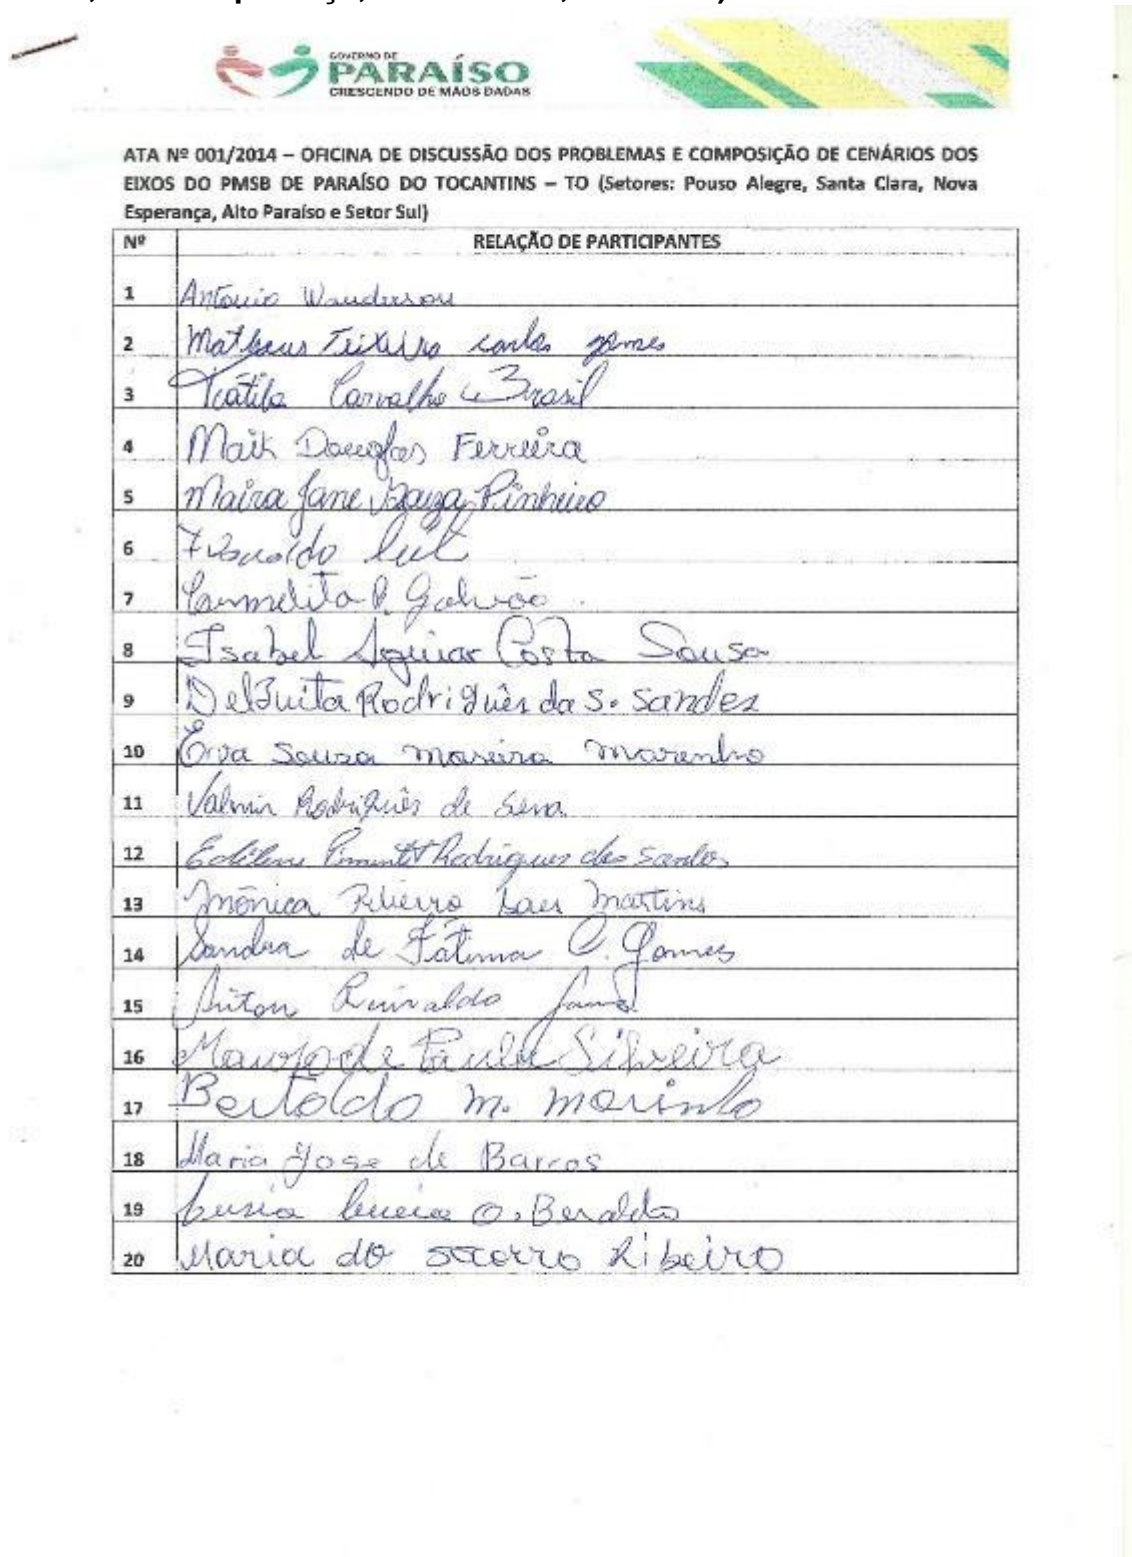 GOVERNO DE
PARAÍSO
CRESCENDO DE MÃOS DADAS
ATA Nº 001/2014 – OFICINA DE DISCUSSÃO DOS PROBLEMAS E COMPOSIÇÃO DE CENÁRIOS DOS
EIXOS DO PMSB DE PARAÍSO DO TOCANTINS – TO (Setores: Pouso Alegre, Santa Clara, Nova
Esperança, Alto Paraíso e Setor Sul)
Nº RELAÇÃO DE PARTICIPANTES
1 Antonio Wanderson
2 Matheus Teixeira carlos gomes
3 Carvalho Brasil
4 Maik Douglas Ferreira
5 Maira Jane Souza Pinheiro
6
7 Carmelita P. Galvão
8 Isabel Aguiar Costa Sousa
9 Rodriguês da S. Sandes
10 Souza moreira
11 Valmir Rodriguês de Sena
12 Rodrigues dos Santos
13 Mônica Ribeiro Martins
14 Sandra de Fátima C. Gomes
15
16 de Paula Silveira
17 Bertoldo m. marinho
18 Maria Jose de Barros
19 O. Beraldo
20 Maria do socorro Ribeiro